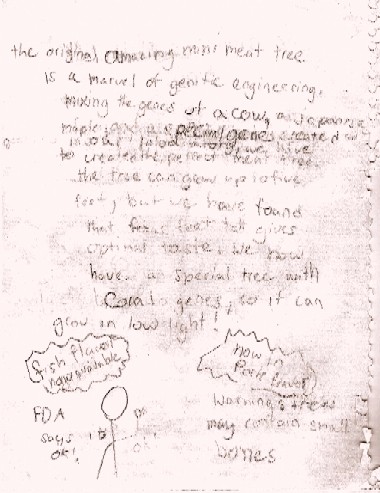 the original amazing mini meat tree.
is a marvel of genitic engineering,
mixing the genes of a cow, and japanese
maple, and a special genes created
in our labs we have
to created the perfect meat tree.
the tree can grow up to five
feet, but we have found
that four feet tall gives
optimal taste. We now
have a special tree with
genes, so it can
grow in low light!
fish flavor
now available
now in
Pork flavor
FDA
says
ok!
Warning: trees
may contain small
bones